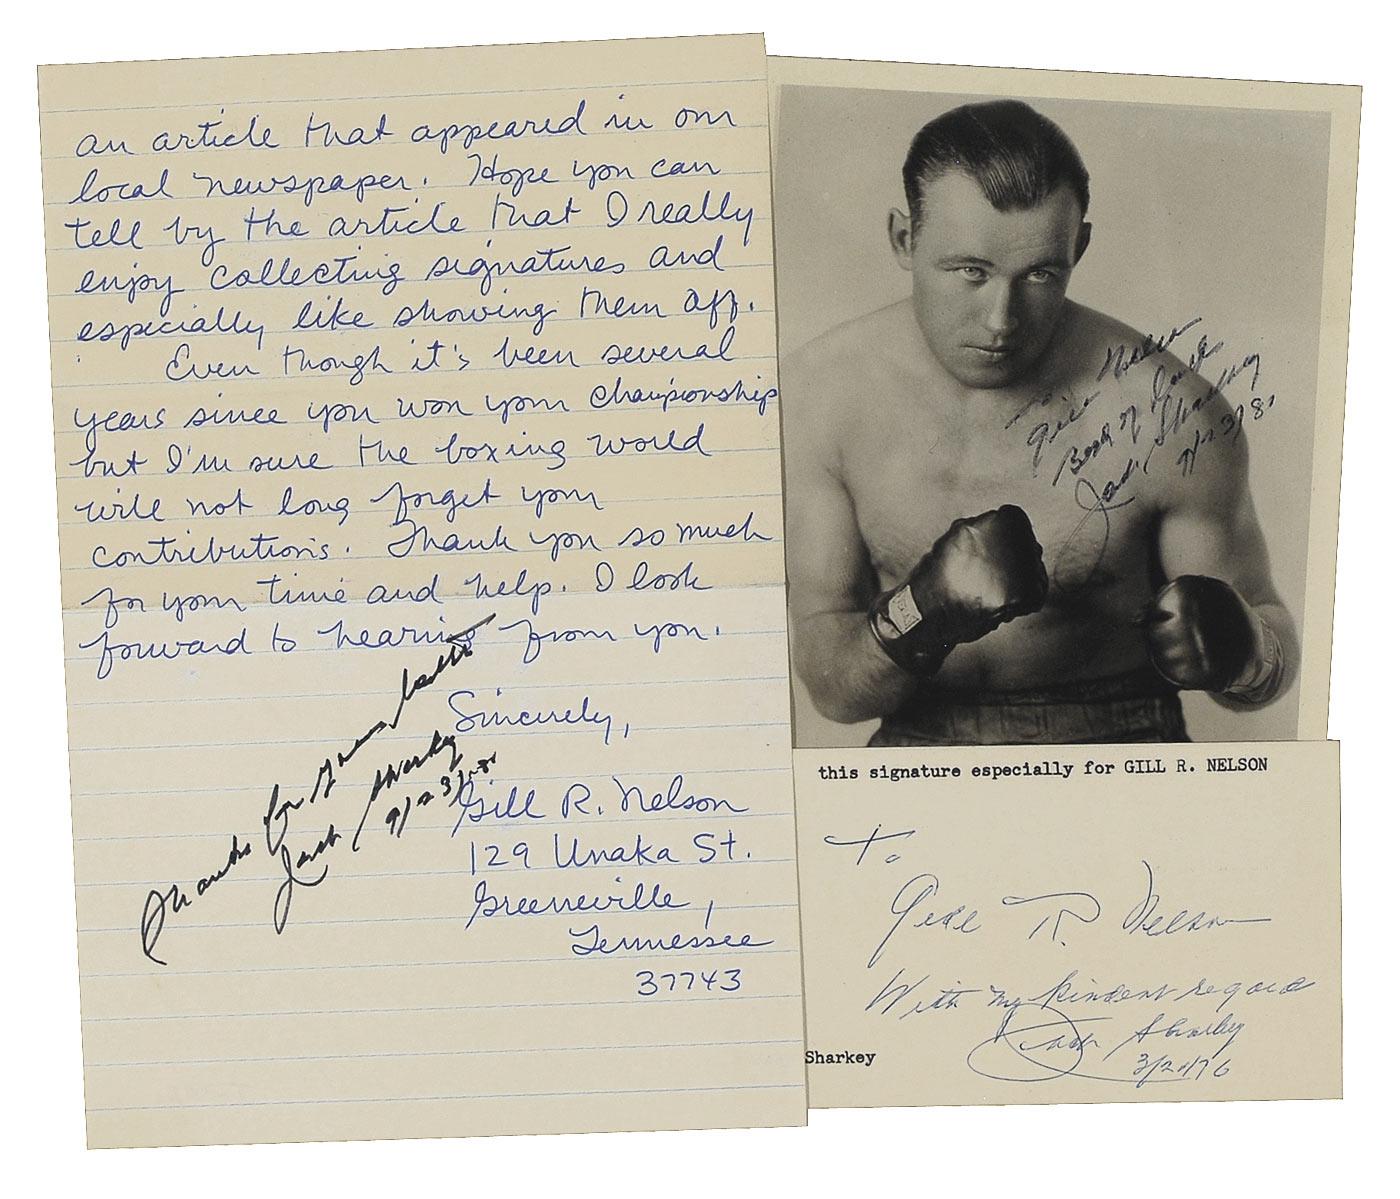 an article that appeared in our
local newspaper. Hope you can
tell by the article that I really
enjoy collecting signatures and
especially like showing them off.
Even though it's been several
years since you won your championship
but I'm sure the boxing world
will not long forget your
contributions. Thank you so much
for your time and help. I look
forward to hearing from you.
Sincerely,
Gill R. Nelson
129 Unaka St.
Greeneville,
Tennessee
37743
Thanks for your letter
Jack Sharkey
To
Gill Nelson
Best of Luck
Jack Sharkey
this signature especially for GILL R. NELSON
To
Gill R. Nelson
With my kindest regards
Jack Sharkey
Sharkey